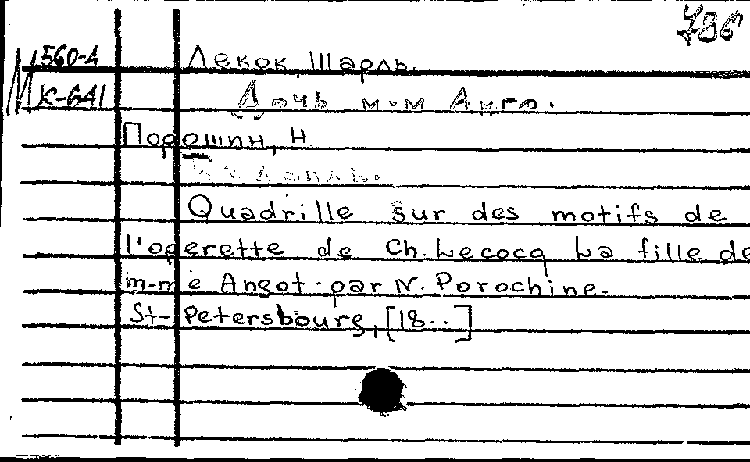 786
М 560-А
К-641
Лекок, Шарль.
Дочь м-м Анго.
Порошин, Н
Quadrille sur des motifs de
l'operette de Ch. Lecocq La fille de
m-me Angot par N. Porochine.
St-Petersbourg, [18..]